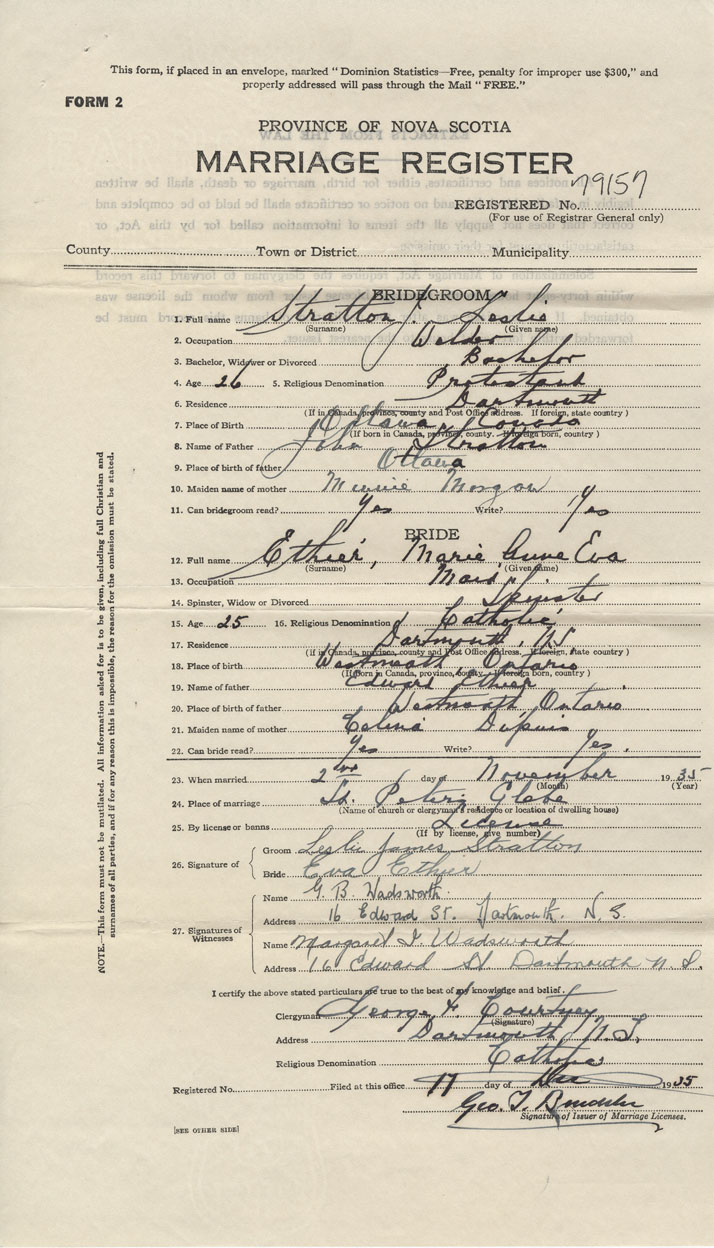 This form, if placed in an envelope, marked "Dominion Statistics—Free, penalty for improper use $300," and
properly addressed will pass through the Mail "FREE."
FORM 2
PROVINCE OF NOVA SCOTIA
MARRIAGE REGISTER
79157
REGISTERED No.
(For use of Registrar General only)
County Town or District Municipality
BRIDEGROOM
1. Full name Stratton J. Leslie
(Surname) (Given name)
2. Occupation Welder
3. Bachelor, Widower or Divorced Bachelor
4. Age 26 5. Religious Denomination Protestant
6. Residence Dartmouth
(If in Canada, province, county and Post Office address. If foreign, state country)
7. Place of Birth Ottawa Canada
(If born in Canada, province, county. If foreign born, country)
8. Name of Father John Stratton
9. Place of birth of father Ottawa
10. Maiden name of mother Minnie Morgan
11. Can bridegroom read? Yes Write? Yes
BRIDE
12. Full name Ethier, Marie Anne Eva
(Surname) (Given name)
13. Occupation Maid
14. Spinster, Widow or Divorced Spinster
15. Age 25 16. Religious Denomination Catholic
17. Residence Dartmouth, N.S.
(If in Canada, province, county and Post Office address. If foreign, state country)
18. Place of birth Westmeath, Ontario
(If born in Canada, province, county. If foreign born, country)
19. Name of father Edward Ethier
20. Place of birth of father Westmeath Ontario
21. Maiden name of mother Celina Dupuis
22. Can bride read? Yes Write? Yes.
23. When married 2nd day of November 1935
(Month) (Year)
24. Place of marriage St. Peter's Glebe
(Name of church or clergyman's residence or location of dwelling house)
25. By license or banns License
(If by license, give number)
26. Signature of
Groom Leslie James Stratton
Bride Eva Ethier
27. Signatures of Witnesses
Name G. B. Wadsworth.
Address 16 Edward St. Dartmouth. N.S.
Name Margaret I. Wadsworth
Address 16 Edward St Dartmouth N.S.
I certify the above stated particulars are true to the best of my knowledge and belief.
Clergyman George F. Courtney
(Signature)
Address Dartmouth, N.S.
Religious Denomination Catholic
Registered No. Filed at this office 17 day of Dec 1935
Geo. T.
Signature of Issuer of Marriage Licenses.
[SEE OTHER SIDE]
NOTE.—This form must not be mutilated. All information asked for is to be given, including full Christian and
surnames of all parties, and if for any reason this is impossible, the reason for the omission must be stated.